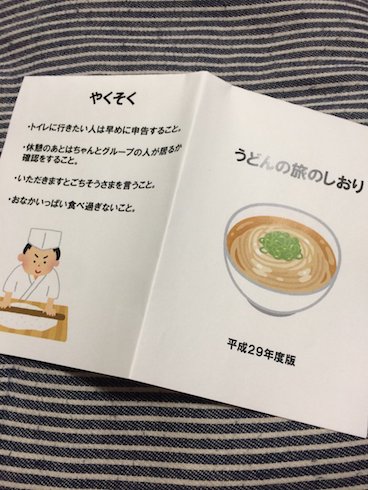 やくそく
・トイレに行きたい人は早めに申告すること。
・休憩のあとはちゃんとグループの人が居るか
確認をすること。
・いただきますとごちそうさまを言うこと。
・おなかいっぱい食べ過ぎないこと。
うどんの旅のしおり
平成29年度版